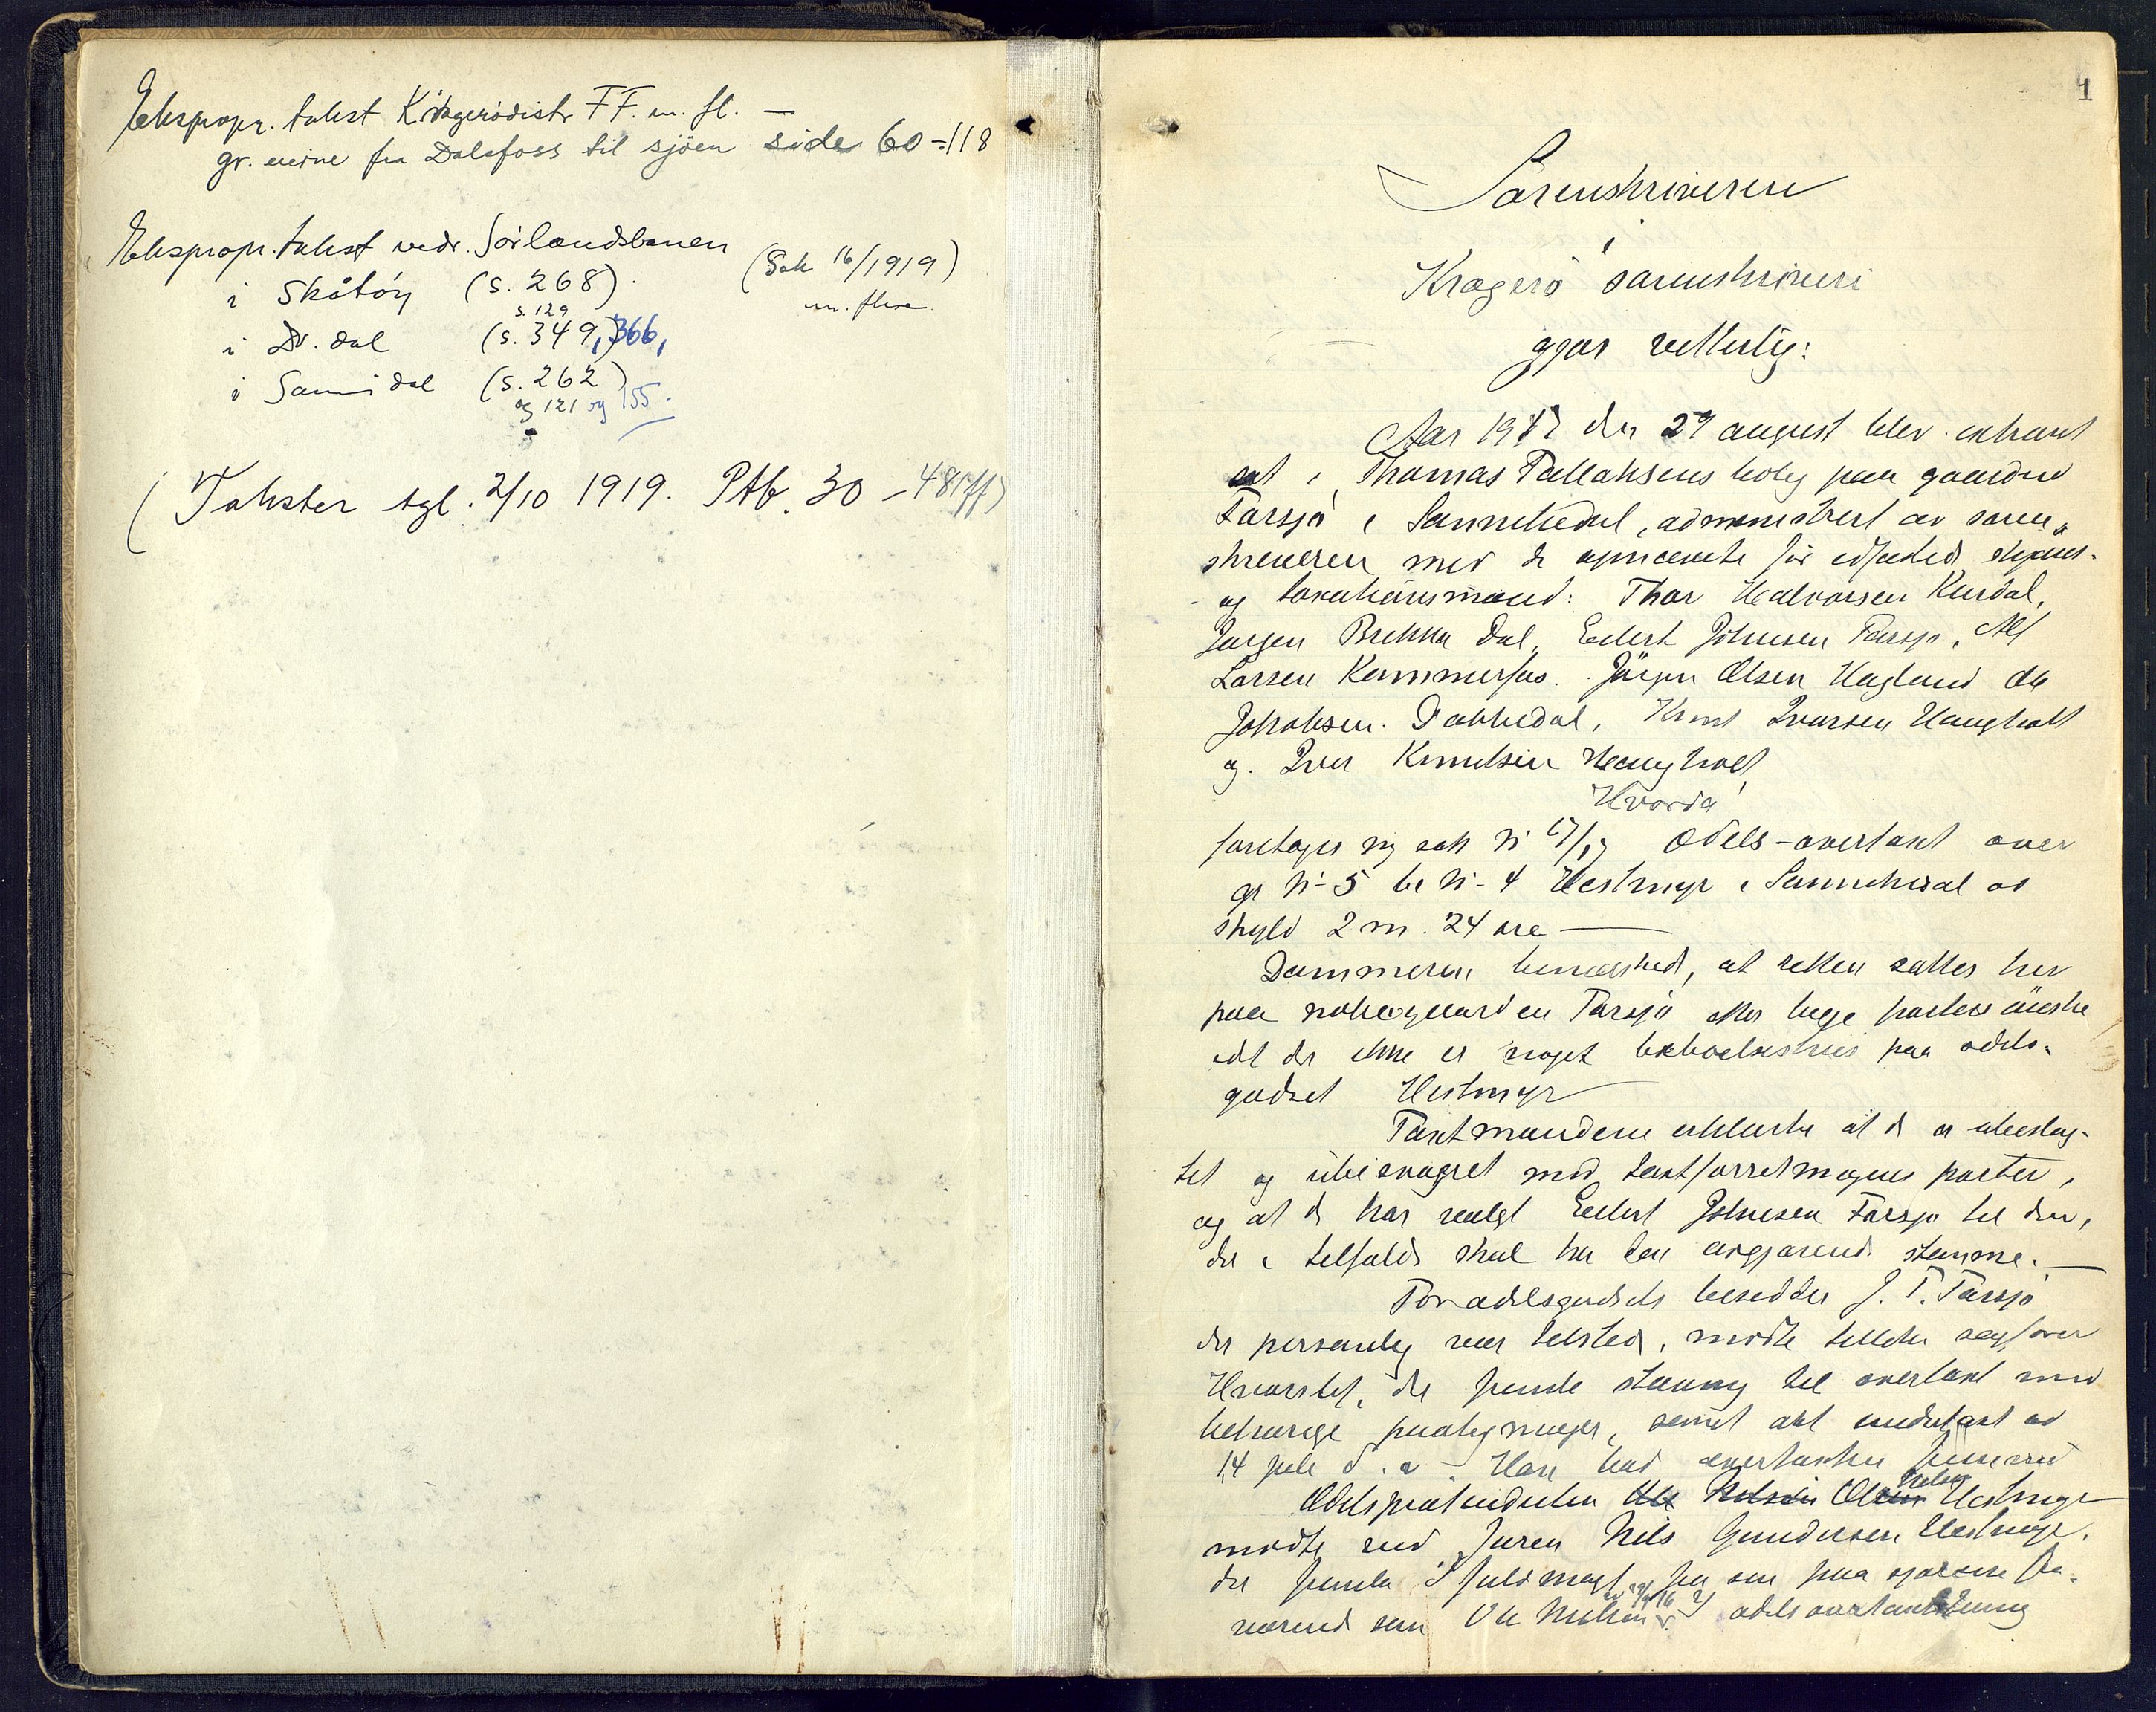 Ekspropr. takst Kragerödistr FF. m. fl. —
gr. eierne fra Dalsfoss til sjöen side 60-118
Ekspropr. takst vedr. Sörlandsbanen
(Sak 16/1919)
m. flere.
i Skåtöy (s. 268).
s. 129
i Dr.dal (s. 349), 366,
i Sannidal (s. 262)
og 121 og 155.
(Takster tgl. 2/10 1919. Ptb. 30 - 481ff)
1
Sorenskriveren
i
Kragerö sorenskriveri
gjør vetterlig:
Aar 1917 den 29 august blev ekstraret
sat i Thomas Tallaksens bolig paa gaarden
Farsjø i Sannikedal, administrert av soren-
skriveren med de opnævnte før edfæstede skjøns-
og taxationsmænd: Thor Halvorsen Kurdal,
Jørgen Brekka Dal, Eilert Johnsen Farsjø, Alf
Larsen Kammerfos. Jörgen Olsen Hegland Ole
Jakobsen Dobbedal, Knut Ivarsen Haugholt
og Iver Knudsen Haugholt
Hvorda
foretoges sig sak Nr 17/17 Odels-overtaxt over
gr Nr 5 br Nr 4 Hestmyr i Sannikedal av
skyld 2 m. 24 øre —
Dommeren bemerket, at retten sættes her
paa nabogaarden Farsjø efter begge parters önske
idet der ikke er noget beboelseshus paa odels-
godset Hestmyr
Taxtmændene erklærte at de er ubeslæg-
tet og ubesvogret med taxtforretningens parter,
og at de har valgt Eilert Johnsen Farsjø til den,
der i tilfælde skal ha den avgjørende stemme. —
For odelsgodsets besidder J. T. Farsjø
der personlig var tilstede, mødte tillike sagfører
Hvorslef, der fremla stevning til overtaxt med
behørige paategninger, samt akt undertaxt av
14 juli d. a. Han bad overtaxten fremmet
Odelsprætendenten Ole Nilsen Hestmyr
mødte ved faren Nils Gundersen Hestmyr,
der fremla fuldmagt fra sin paa sjøreise fra-
værende søn Ole Nilsen odelsovertaxt